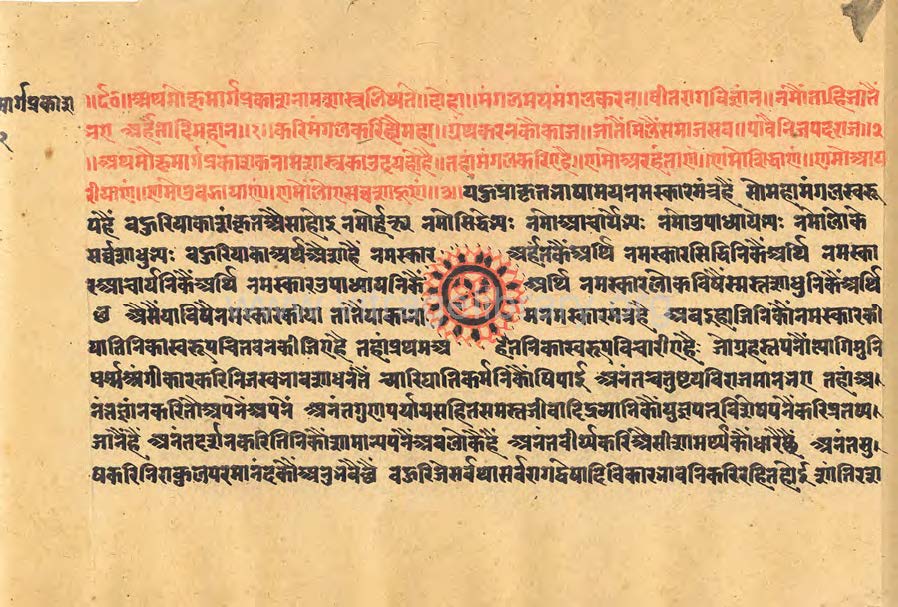 मार्गप्रकाश
२
॥अथमोक्षमार्गप्रकाशनामशास्त्रलिख्यते॥दोहा॥मंगलमयमंगलकरन॥वीतरागविज्ञान॥नमौंताहिजातैं
नए अर्हंतादिमहान॥१॥करिमंगलकरिहौंमहा॥ग्रंथकरनकौकाज॥जातैंमिलैंसमाजसव॥पावैनिजपदराज॥२
॥अथमोक्षमार्गप्रकाशकनामशास्त्रकाउदयहोहै॥तहांमंगलकरिएहै॥णमोअरहंताणं॥णमोसिद्धाणं॥णमोआय
रीयाणं॥णमोउवज्झायाणं॥णमोलोएसव्वसाहूणं॥१॥यहुप्राकृतभाषामयनमस्कारमंत्रहै सोमहामंगलस्वरू
पहै वहुरियाकासंस्कृतअैसाहोइ नमोर्हद्भ्यः नमोसिद्धेभ्यः नमोआचार्येभ्यः नमोउपाध्यायेभ्यः नमोलोके
सर्व्वसाधुभ्यः वहुरियाकाअर्थअैसाहै नमस्कार अर्हंतकैंअर्थि नमस्कारसिद्धिनिकैंअर्थि नमस्का
रआचार्यनिकैंअर्थि नमस्कारउपाध्यायनिकैं अर्थि नमस्कारलोकविषैंसमस्तसाधुनिकैंअर्थि
अैसैंयाविषैंनमस्कारकीया तातैंयाकानां मनमस्कारमंत्रहै अवइहांजिनिकौंनमस्कारकी
यातिनिकास्वरूपचिंतवनकीजिएहै तहांप्रथमअ र्हंतनिकास्वरूपविचारीएहै जोगृहस्तपनौंत्यागिमुनि
धर्म्मअंगीकारकरिनिजस्वभावसाधनतैं च्यारिघातिकर्मनिकौंषिपाइ अनंतचतुष्टयविराजमानभए तहांअ।
नंतज्ञानकरितौअपनेंअपनें अनंतगुणपर्यायसहितसमस्तजीवादिद्रव्यनिकौंयुगपतविशेषपनेंकरिप्रतक्ष।
जानैंहैं अनंतदर्शनकरितिनिकौंसामान्यपनैंअवलोकैहैं अनंतवीर्यकरिअैसीसामर्थ्यकौंधारैहैं अनंतसु।
षकरिनिराकुलपरमानंदकौंअनुभवैहैं वहुरिजेसर्वथासर्वरागद्वेषादिविकारभावनिकरिरहितहोइ शांतिरसरू